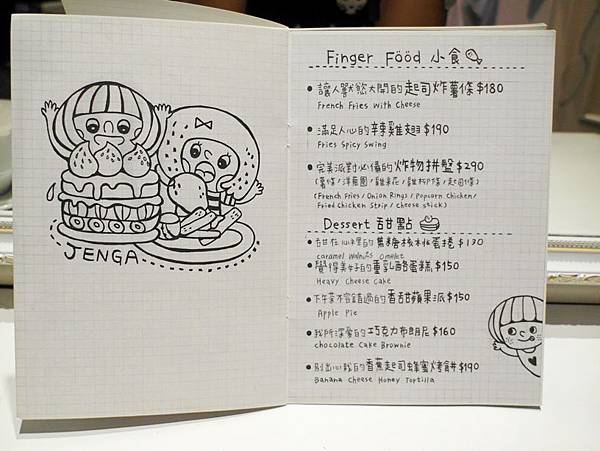 JENGA
Finger Food 小食
讓人獸慾大開的起司炸薯條 $180
French Fries with Cheese
滿足人心的辛辣雞翅 $190
Fries Spicy Swing
完美派對必備的炸物拼盤 $290
(薯條/洋蔥圈/雞米花/雞柳條/起司條)
(French Fries/Onion Rings/Popcorn Chicken/
Fried Chicken Strip/cheese stick)
Dessert 甜點
甜在心裡的焦糖核桃蛋捲 $130
caramel Walnuts Omelet
覺得美好的重乳酪蛋糕 $150
Heavy Cheese Cake
下午茶不容錯過的香甜蘋果派 $150
Apple Pie
我所深愛的巧克力布朗尼 $160
chocolate Cake Brownie
別出心裁的香蕉起司蜂蜜烤餅 $190
Banana Cheese Honey Toptilla